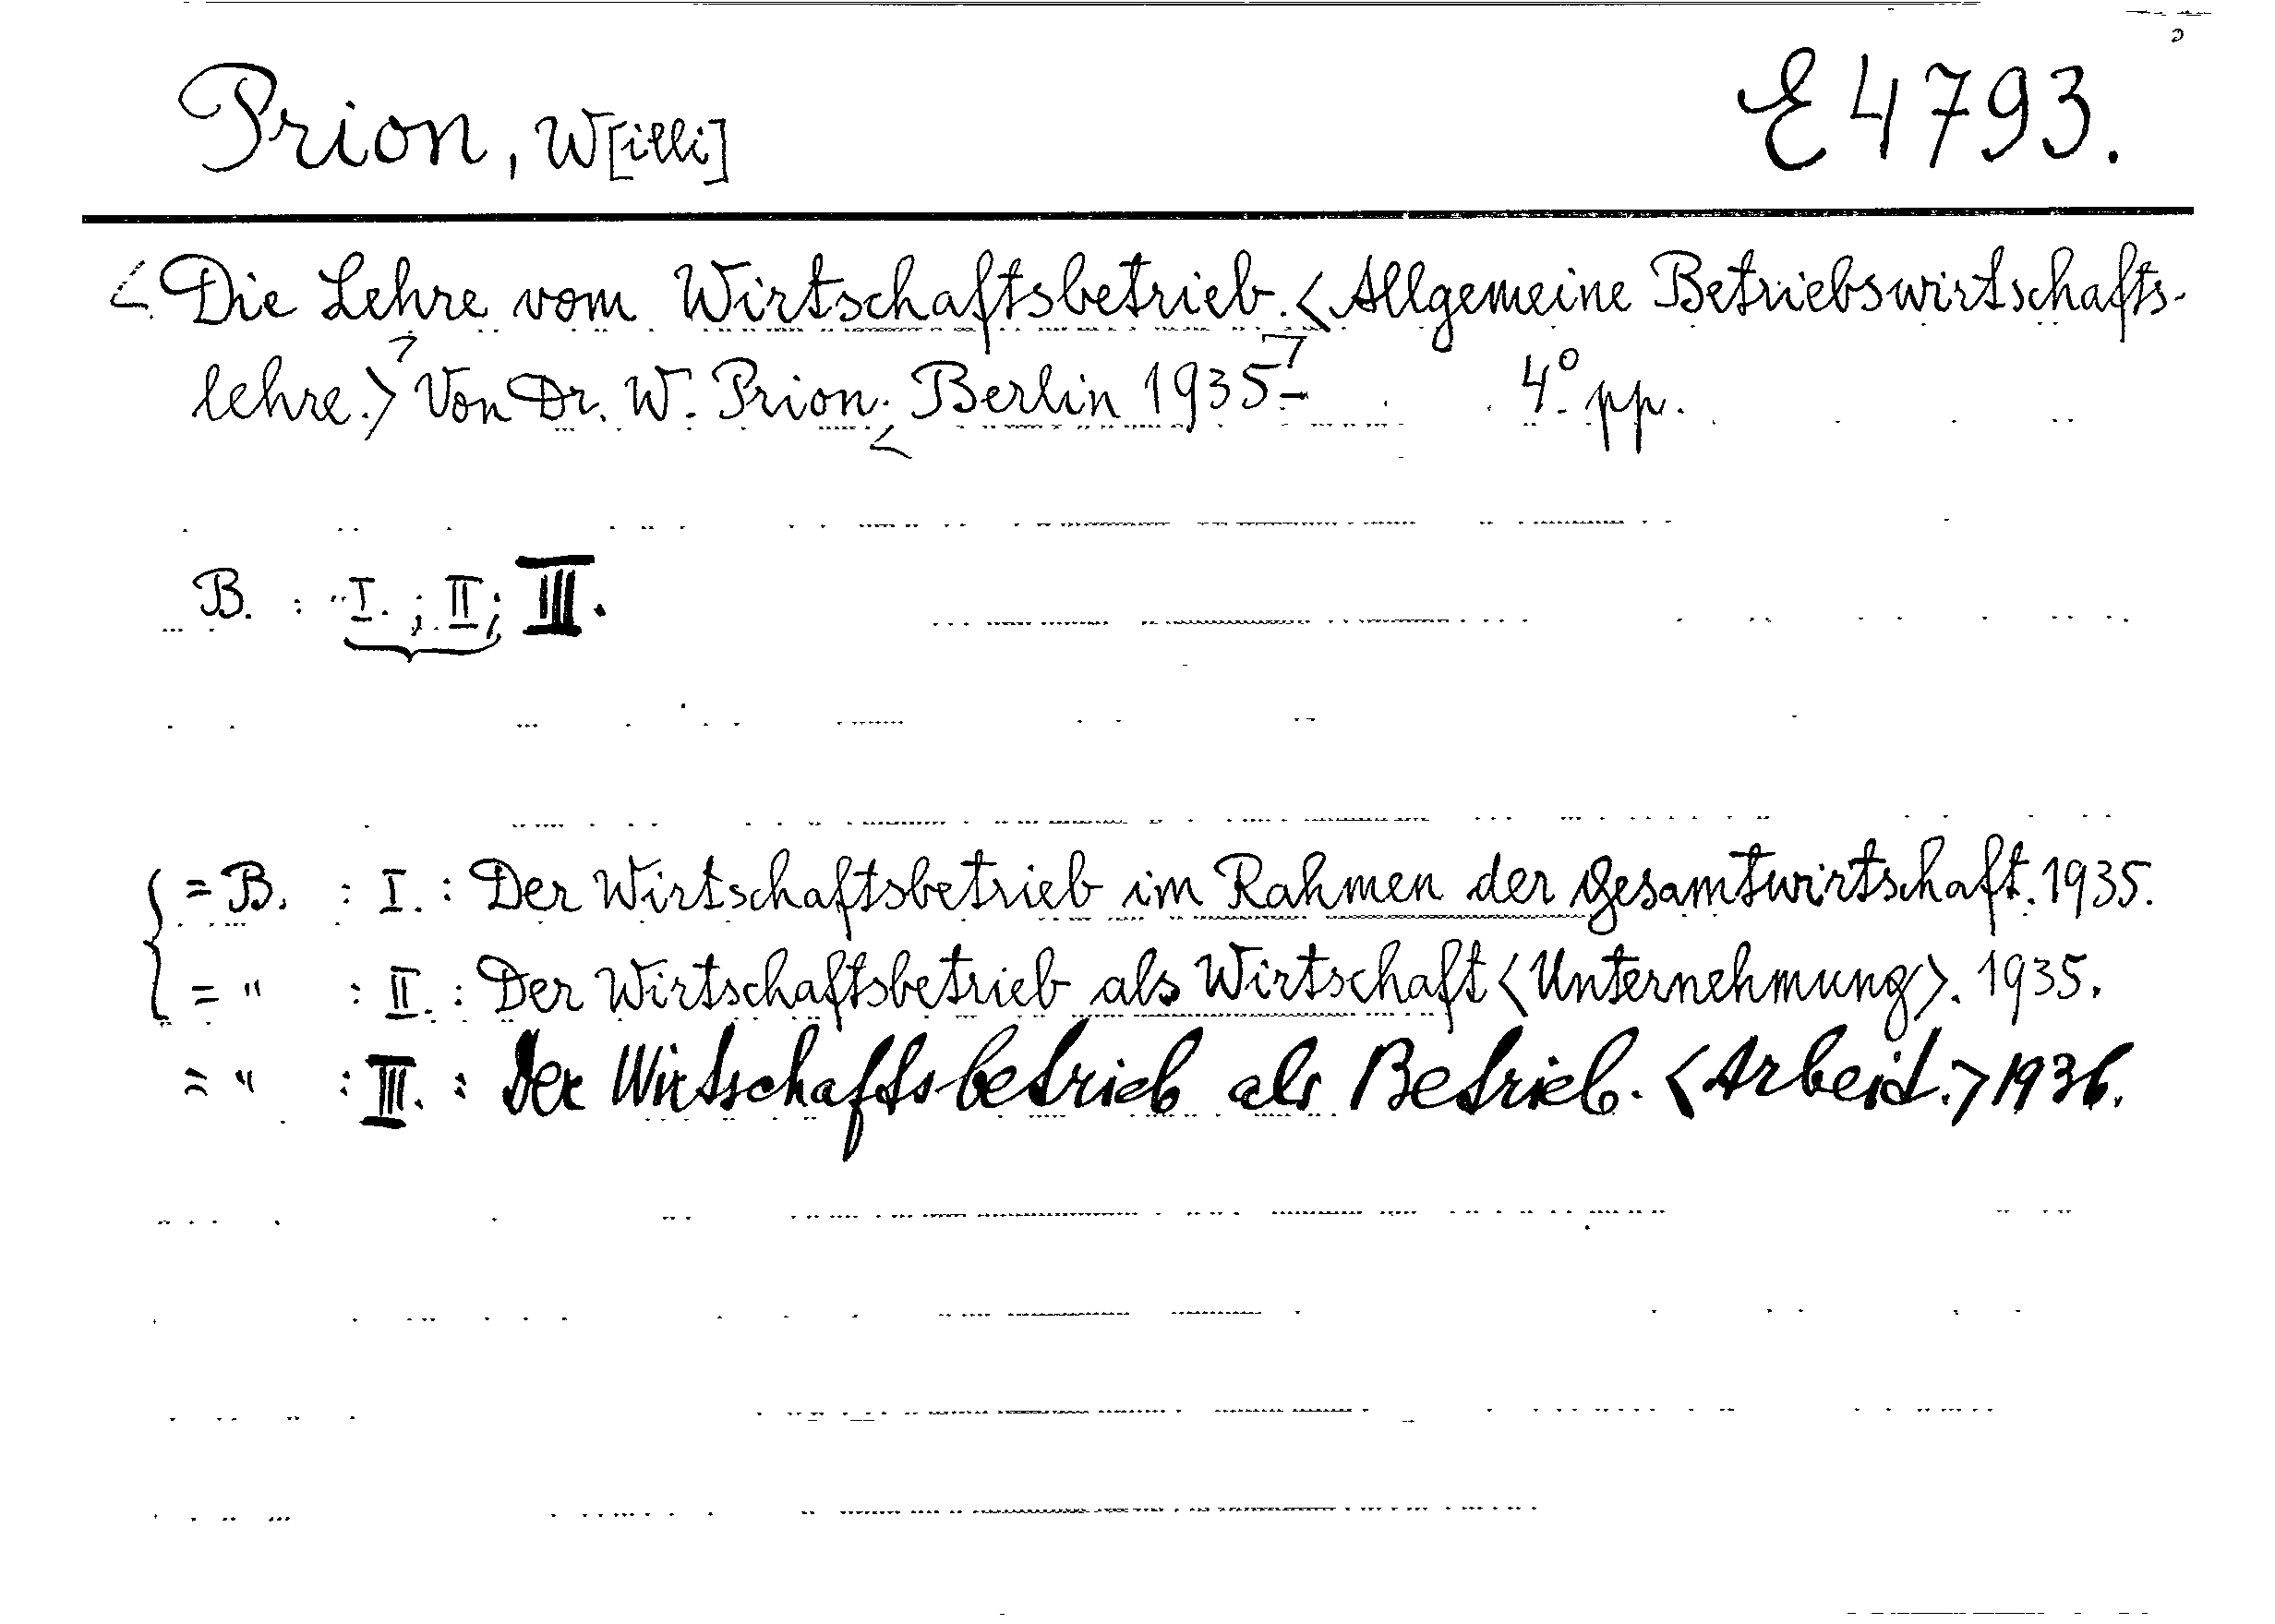 Prion, W[illi] E 4793.
<Die Lehre vom Wirtschaftsbetrieb. <Allgemeine Betriebswirtschafts-
lehre.>> Von Dr. W. Prion. <Berlin 1935>- 4° pp.
B. : I. ; II ; III.
= B. : I. : Der Wirtschaftsbetrieb im Rahmen der Gesamtwirtschaft. 1935.
= " : II. : Der Wirtschaftsbetrieb als Wirtschaft <Unternehmung>. 1935.
= " : III. : Der Wirtschaftsbetrieb als Betrieb. <Arbeit.> 1936.